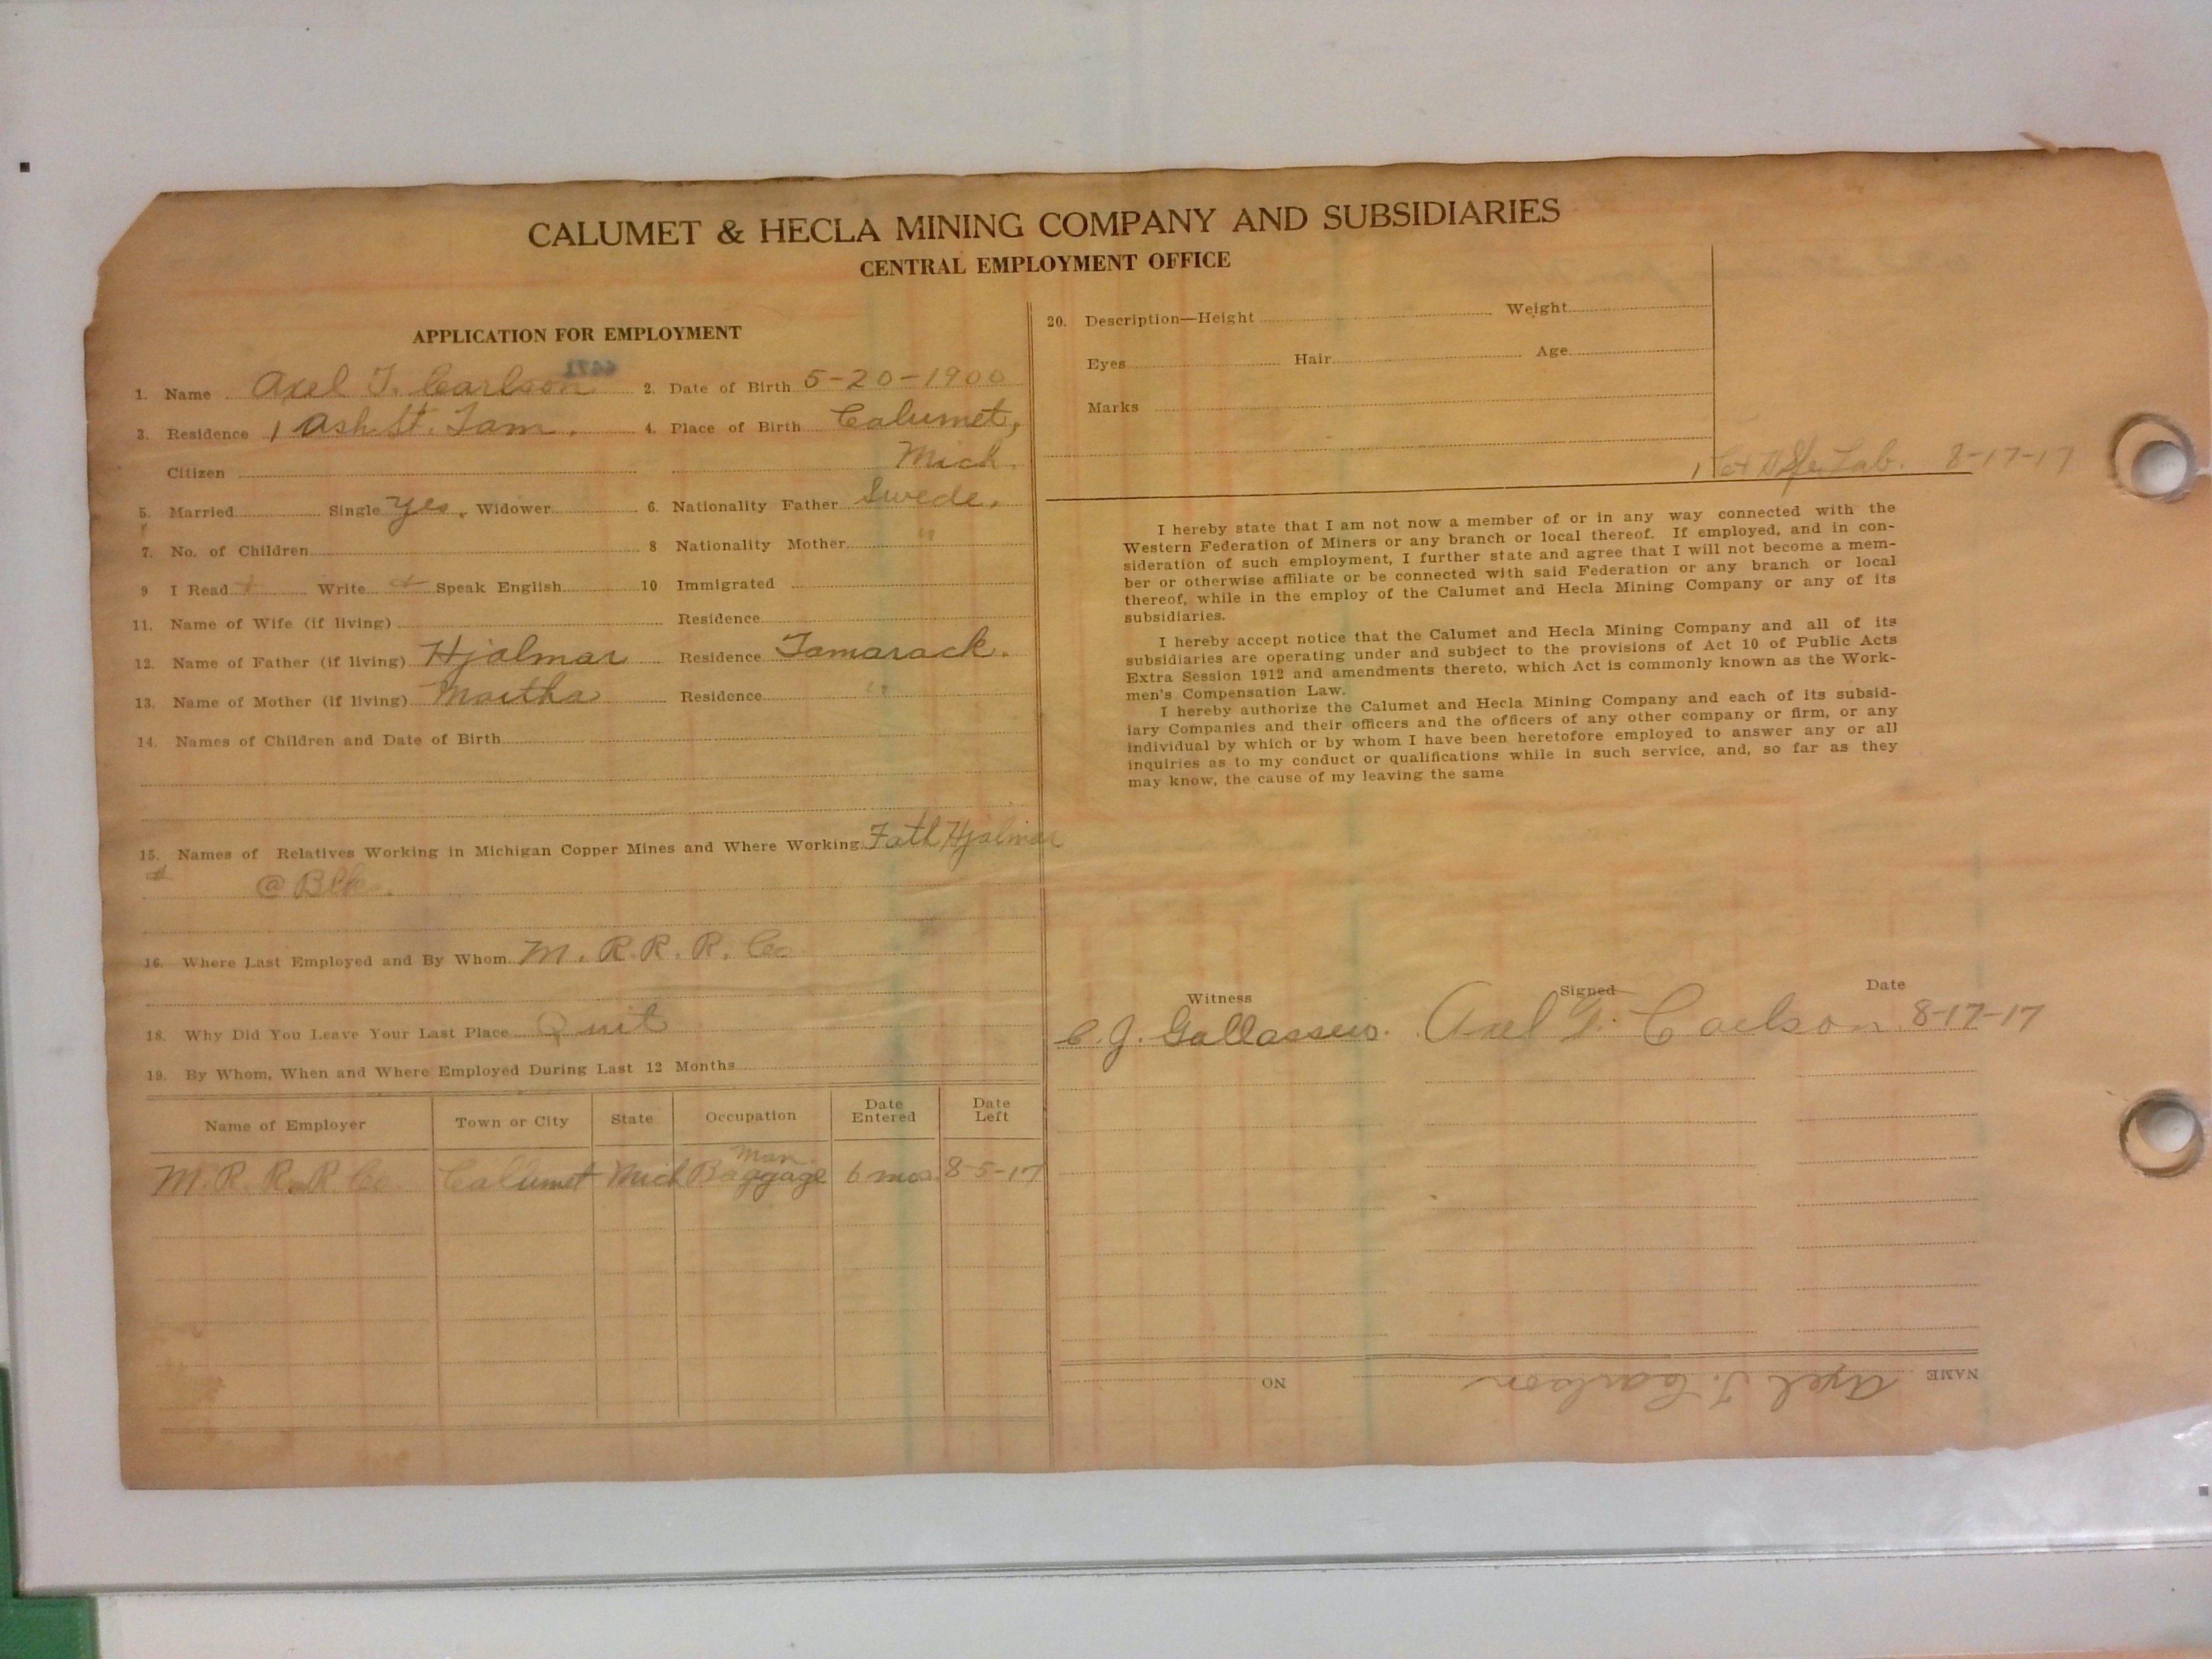 CALUMET & HECLA MINING COMPANY AND SUBSIDIARIES
CENTRAL EMPLOYMENT OFFICE
APPLICATION FOR EMPLOYMENT
1. Name Axel T. Carlson 2. Date of Birth 5-20-1900
3. Residence 1 Ash St. Tam. 4. Place of Birth Calumet,
Citizen Mich.
5. Married Single Yes. Widower 6. Nationality Father Swede.
7. No. of Children 8 Nationality Mother "
9 I Read + Write + Speak English 10 Immigrated
11. Name of Wife (if living) Residence
12. Name of Father (if living) Hjalmar Residence Tamarack.
13. Name of Mother (if living) Martha Residence "
14. Names of Children and Date of Birth
15. Names of Relatives Working in Michigan Copper Mines and Where Working. Fath Hjalmar
@ Blk.
16. Where Last Employed and By Whom M. R. R. R. Co.
18. Why Did You Leave Your Last Place Quit
19. By Whom, When and Where Employed During Last 12 Months
Name of Employer Town or City State Occupation Date Entered Date Left
M. R. R. R. Co. Calumet Mich Baggage man 6 mos. 8-5-17
20. Description—Height Weight
Eyes Hair Age
Marks
Lab. 8-17-17
I hereby state that I am not now a member of or in any way connected with the
Western Federation of Miners or any branch or local thereof. If employed, and in con-
sideration of such employment, I further state and agree that I will not become a mem-
ber or otherwise affiliate or be connected with said Federation or any branch or local
thereof, while in the employ of the Calumet and Hecla Mining Company or any of its
subsidiaries.
I hereby accept notice that the Calumet and Hecla Mining Company and all of its
subsidiaries are operating under and subject to the provisions of Act 10 of Public Acts
Extra Session 1912 and amendments thereto, which Act is commonly known as the Work-
men's Compensation Law.
I hereby authorize the Calumet and Hecla Mining Company and each of its subsid-
iary Companies and their officers and the officers of any other company or firm, or any
individual by which or by whom I have been heretofore employed to answer any or all
inquiries as to my conduct or qualifications while in such service, and, so far as they
may know, the cause of my leaving the same
Witness Signed Date
C. J. Axel T. Carlson 8-17-17
NAME Axel T. Carlson NO